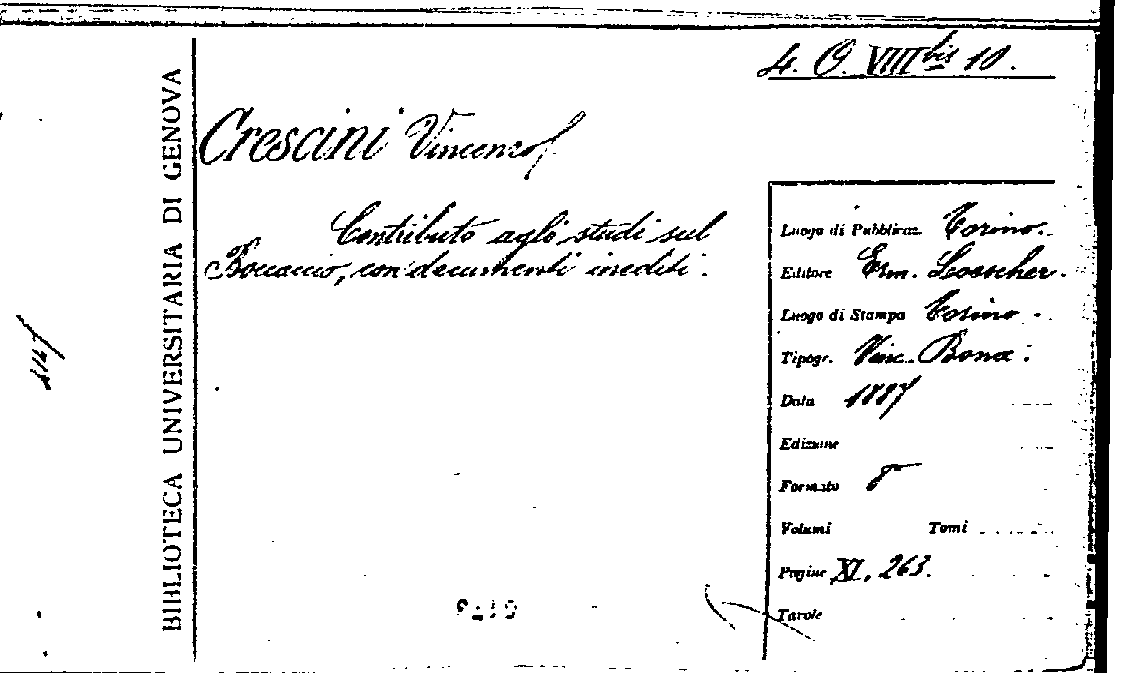 4. O. VIII bis 10.
BIBLIOTECA UNIVERSITARIA DI GENOVA
Crescini Vincenzo
Contributo agli studi sul
Boccaccio, con documenti inediti.
Luogo di Pubblicaz. Torino.
Editore Erm. Loescher.
Luogo di Stampa Torino.
Tipogr. Vinc. Bona.
Data 1887
Edizione
Formato 8°
Volumi Tomi
Pagine XI, 263.
Tavole